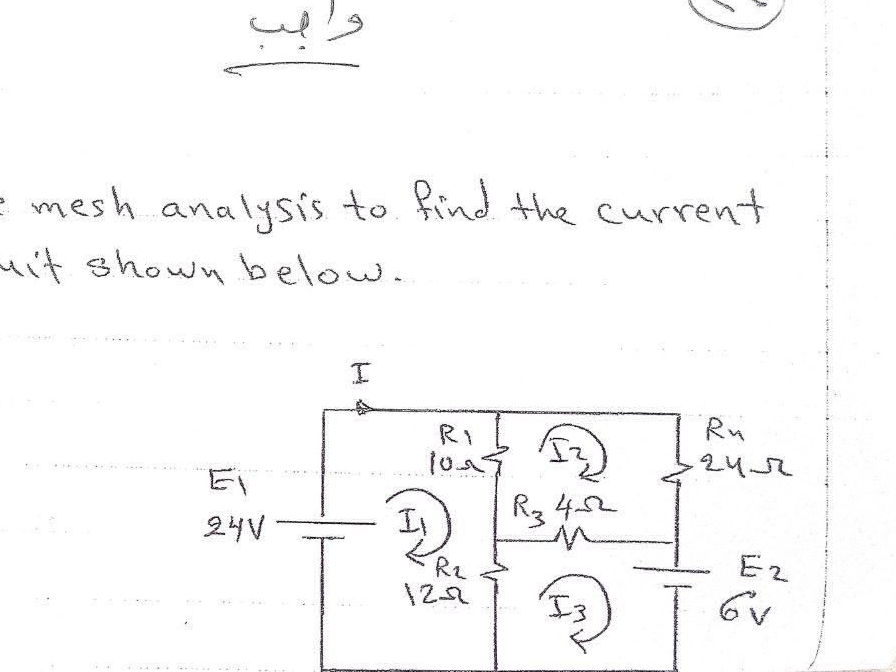 واجب
mesh analysis to find the current
uit shown below.
I
R1
10Ω
I2
R4
24Ω
E1
24V
I1
R3 4Ω
R2
12Ω
I3
E2
6V